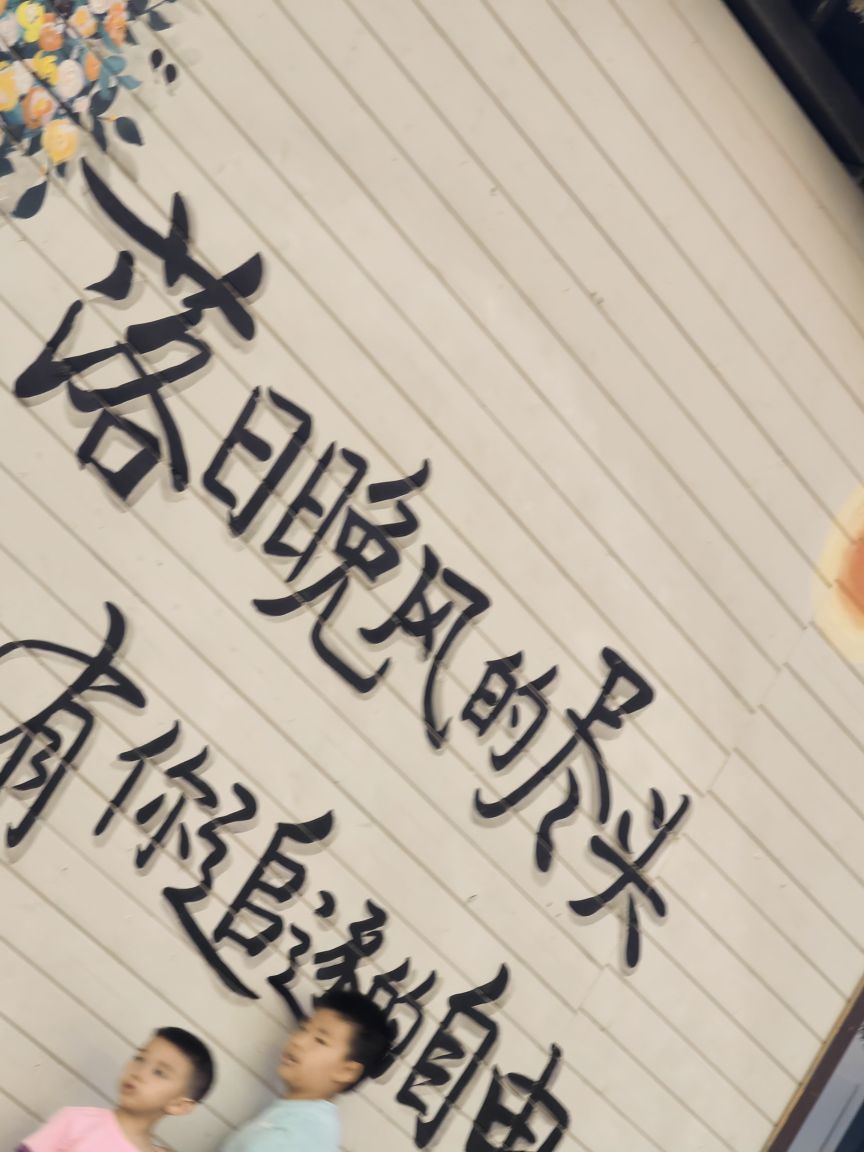 落日晚风的尽头
有你追逐的自由